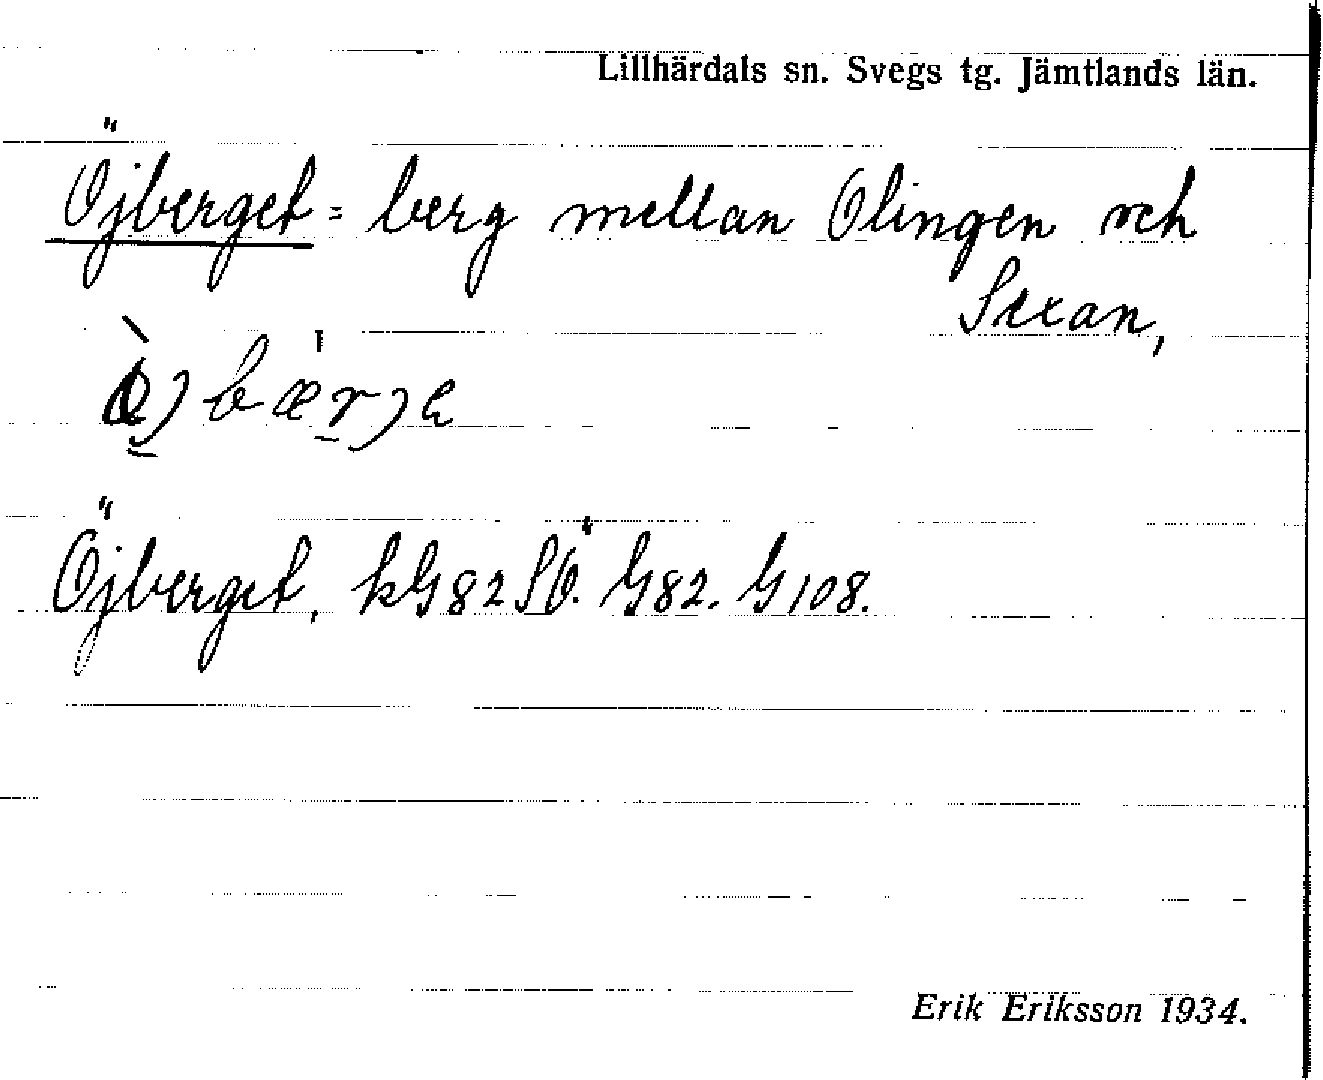 Lillhärdals sn. Svegs tg. Jämtlands län.
Öjberget = berg mellan Olingen och
Sexan,
Öjberget, kG82SÖ. G82. G108.
Erik Eriksson 1934.